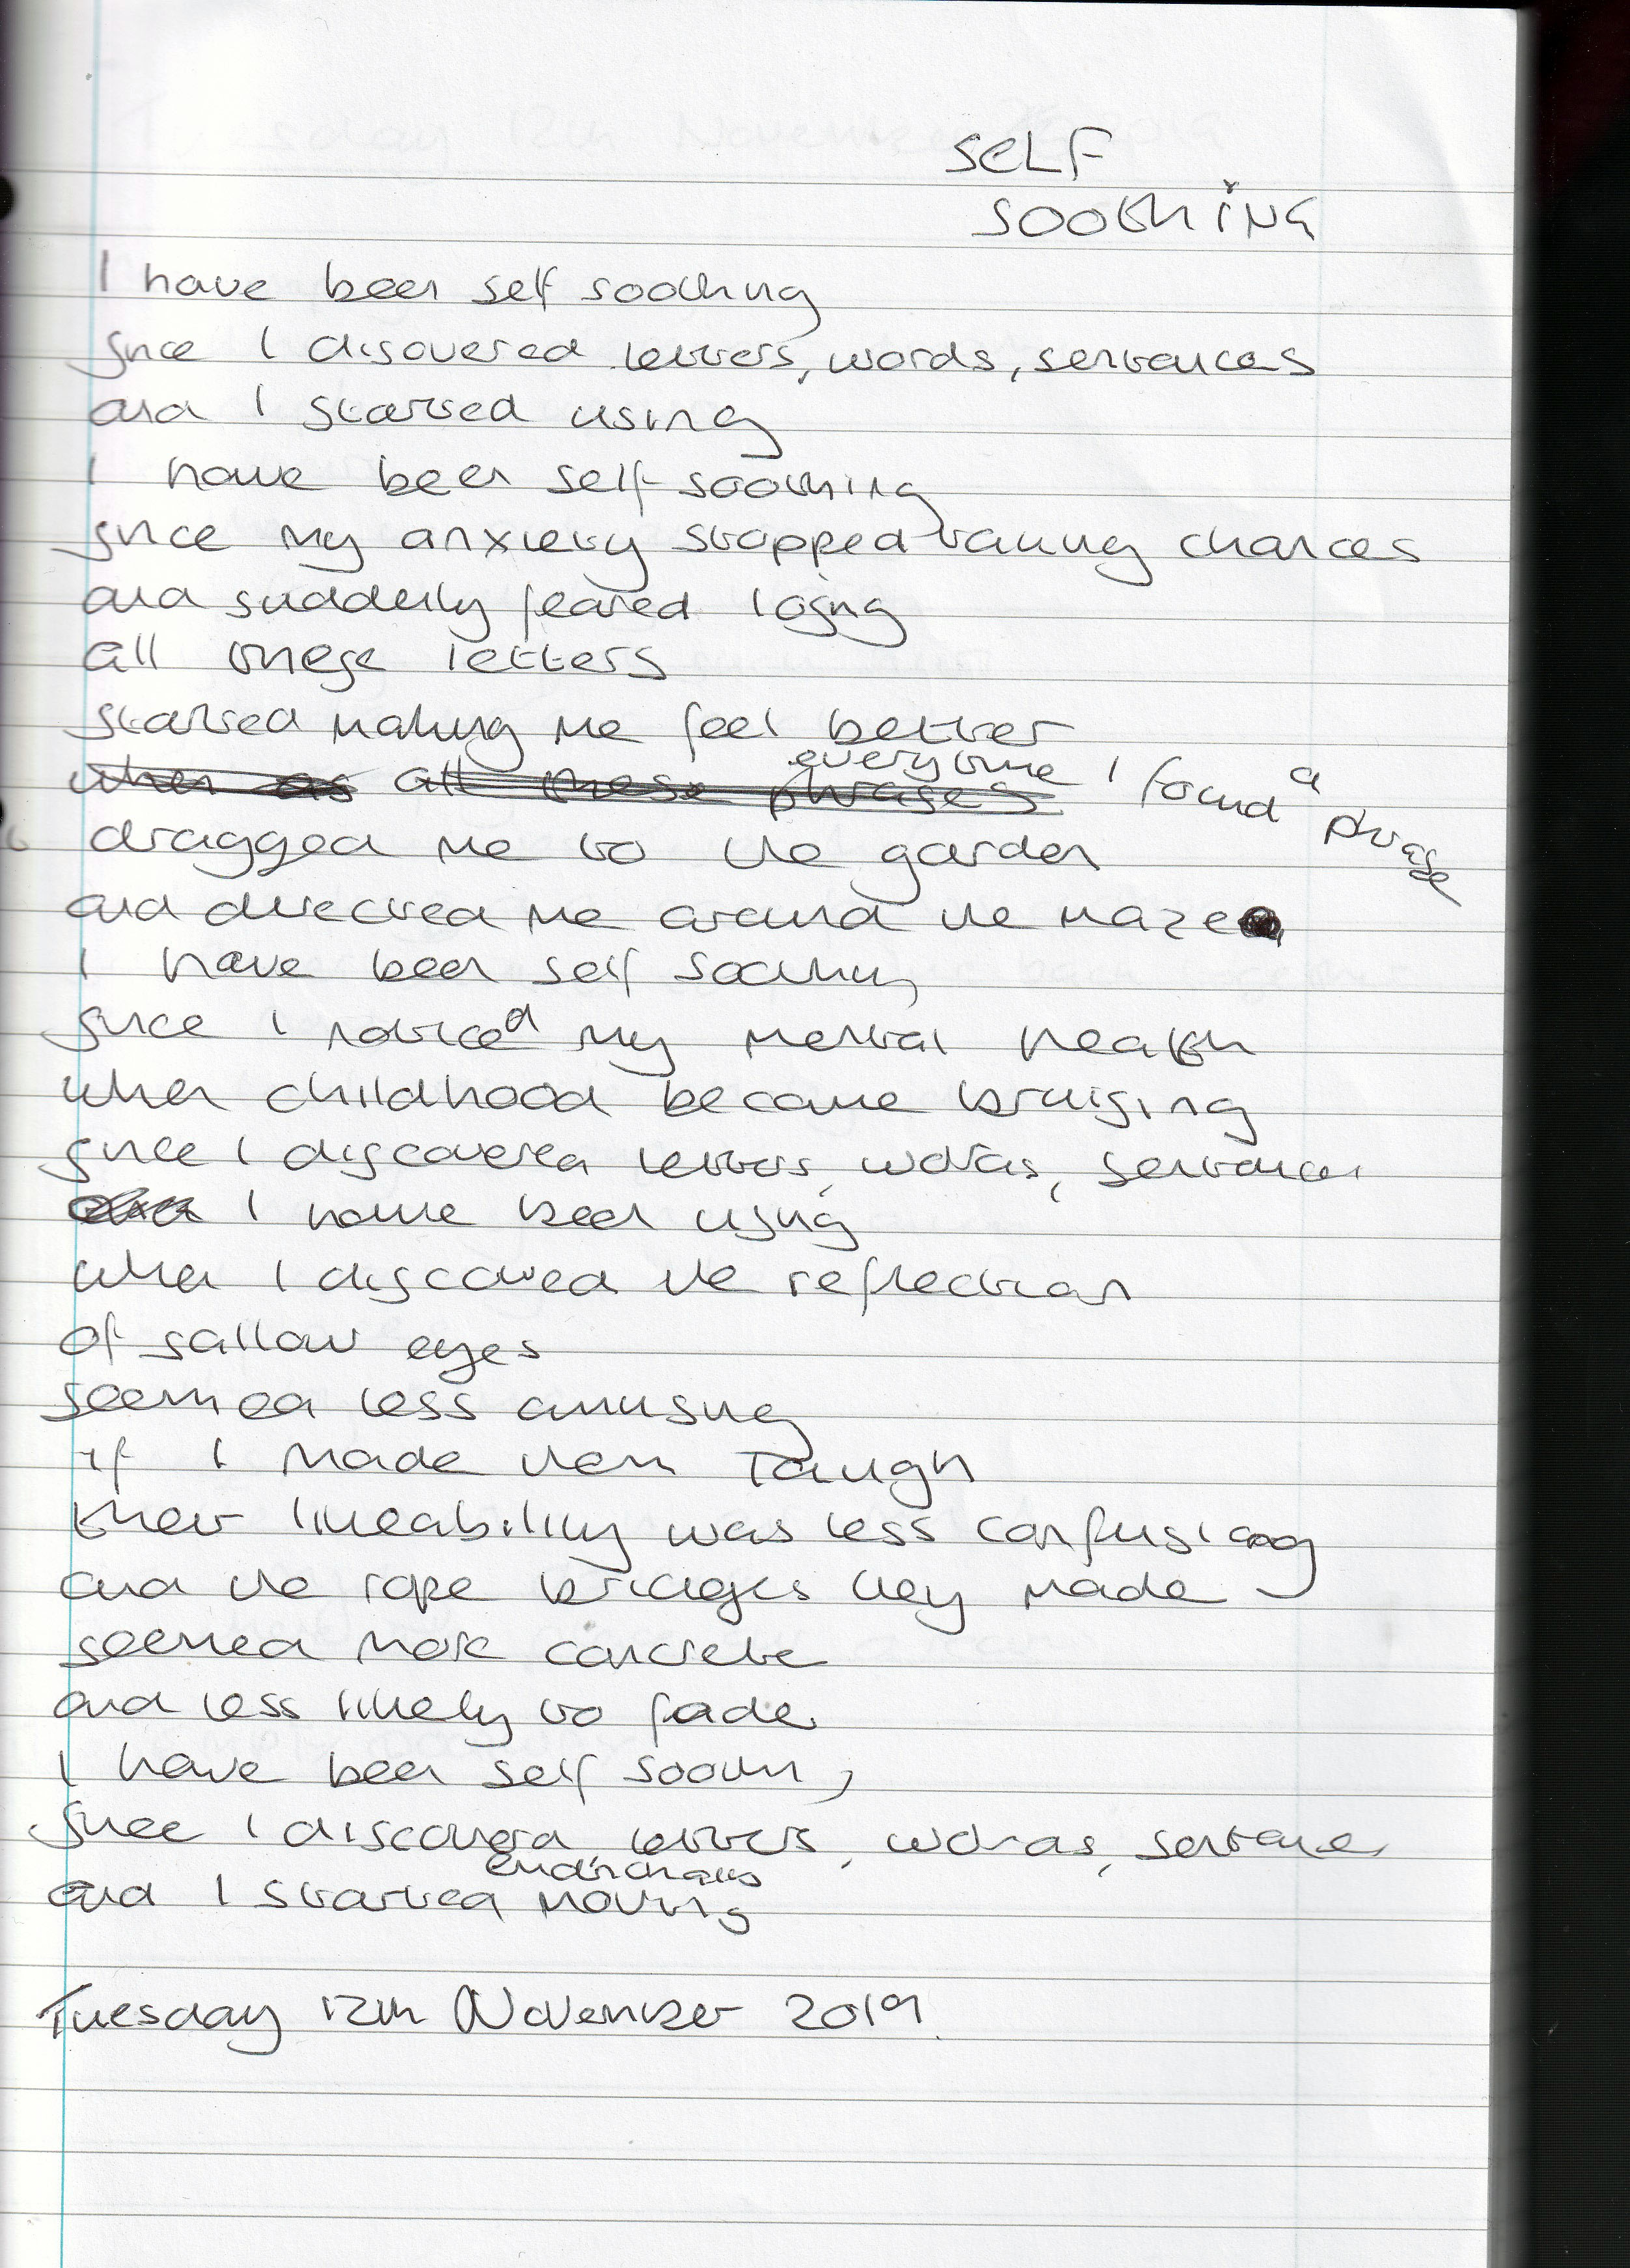 SELF
SOOTHING
I have been self soothing
since I discovered letters, words, sentences
and I started using
I have been self soothing
since my anxiety stopped taking chances
and suddenly feared losing
all these letters
started making me feel better
when as all these phrases everytime I found a phrase
dragged me to the garden
and directed me around the maze
I have been self soothing
since I noticed my mental health
when childhood became bruising
since I discovered letters, words, sentences
I have been using
when I discovered the reflection
of sallow eyes
seemed less amusing
if I made them laugh
their likeability was less confusing
and the rope bridges they made
seemed more concrete
and less likely to fade.
I have been self soothing
since I discovered letters, words, sentence
and I started moving
Tuesday 12th November 2019.